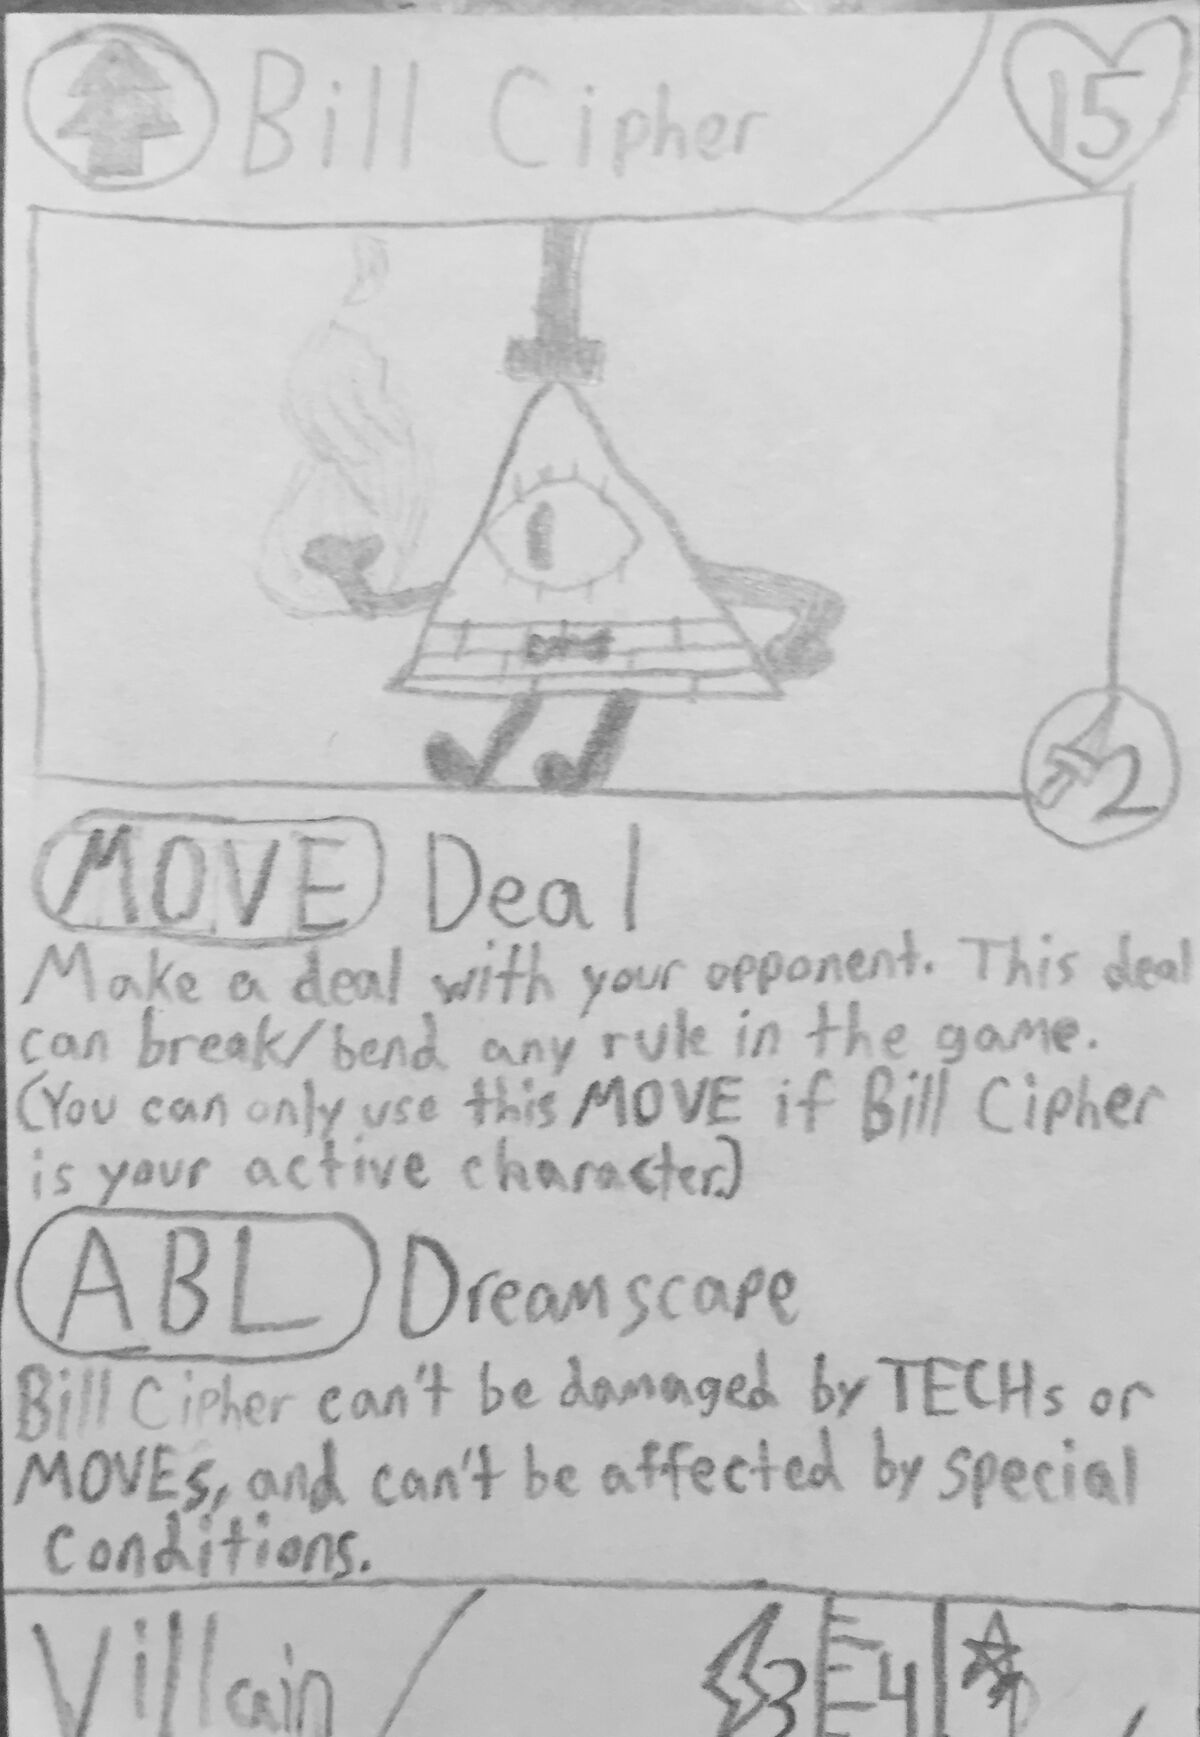 Bill Cipher
15
2
MOVE Deal
Make a deal with your opponent. This deal
can break/bend any rule in the game.
(You can only use this MOVE if Bill Cipher
is your active character.)
ABL Dreamscape
Bill Cipher can't be damaged by TECHs or
MOVEs, and can't be affected by special
conditions.
Villain 3 4